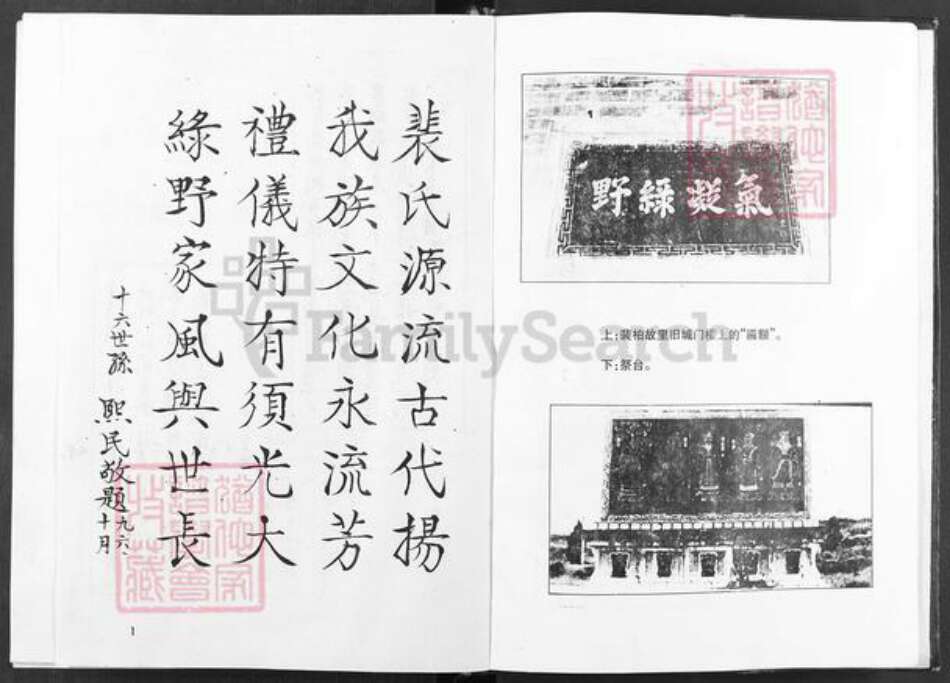 裴氏源流古代揚
我族文化永流芳
禮儀特有須光大
綠野家風與世長
十六世孫 熙民敬題
九六.十月
1
氣凝綠野
上:裴柏故里旧城门楼上的“匾额”。
下:祭台。
FamilySearch